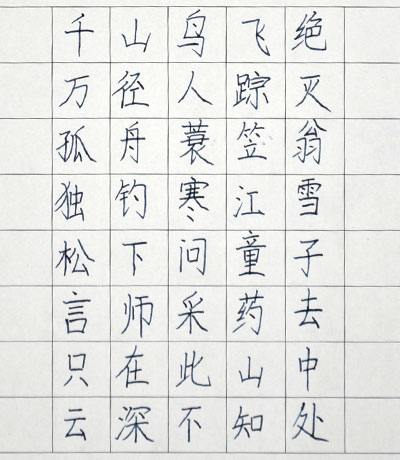 千山鸟飞绝
万径人踪灭
孤舟蓑笠翁
独钓寒江雪
松下问童子
言师采药去
只在此山中
云深不知处